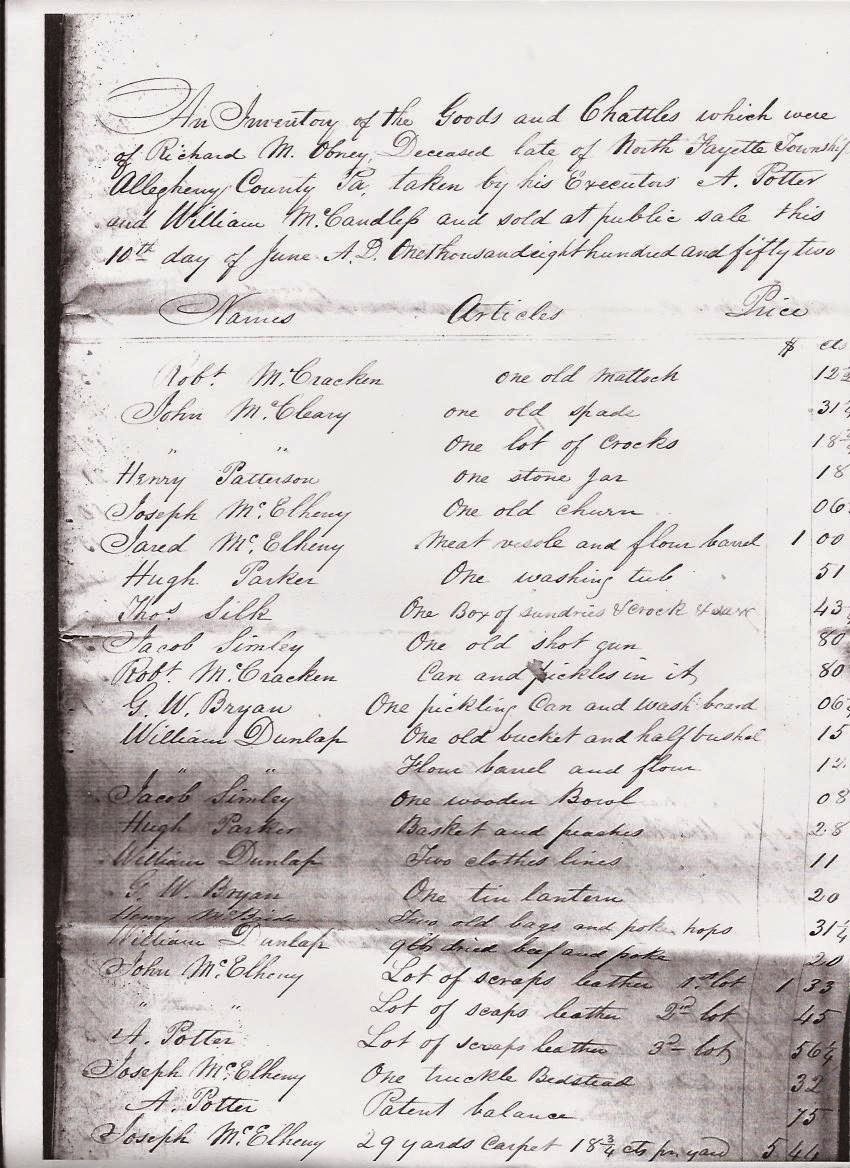 An Inventory of the Goods and Chattles which were
of Richard M. Obney, Deceased late of North Fayette Township
Allegheny County Pa, taken by his Executors A. Potter
and William McCandless and sold at public sale this
10th day of June A.D. One thousand eight hundred and fifty two
Names Articles Price
$ cts
Robt. McCracken one old mattock 12½
John McCleary one old spade 31¼
" " One lot of Crocks 18¾
Henry Patterson One stone jar 18
Joseph McElheny One old churn 06
Jared McElheny Meat vesole and flour barrel 1 00
Hugh Parker One washing tub 51
Thos. Silk One Box of sundries & crock & 43
Jacob Simley One old shot gun 80
Robt. McCracken Can and pickles in it 80
G. W. Bryan One pickling Can and wash board 06
William Dunlap One old bucket and half bushel 15
" " Flour barrel and flour 12
Jacob Simley One wooden Bowl 08
Hugh Parker Basket and peaches 28
William Dunlap Two clothes lines 11
G. W. Bryan One tin lantern 20
Henry McBride Two old bags and poke hops 31¼
William Dunlap 9 lbs dried beef and poke 20
John McElheny Lot of scraps leather 1st lot 1 33
" " Lot of scaps leather 2d lot 45
A. Potter Lot of scraps leather 3d lot 56¼
Joseph McElheny One truckle Bedstead 32
A. Potter Patent balance 75
Joseph McElheny 29 yards Carpet 18¾ cts pr yard 5 44